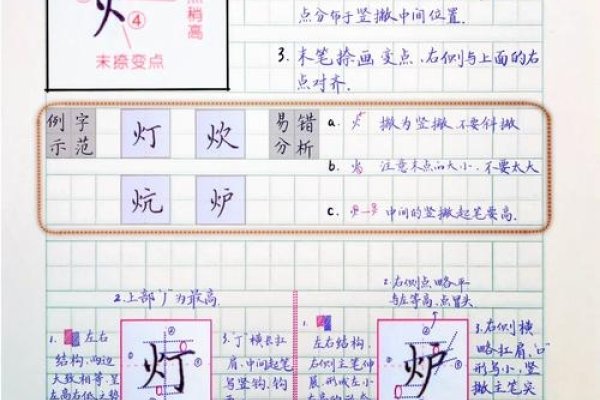 点稍
高
④
末捺变点
点分布于竖撇中间位置.
3. 末笔捺画变点、右侧与上面的右
点对齐.
例字
示范
灯
炊
炕
炉
易错
分析
a. 撇为竖撇不要斜撇
b. 注意末点的大小、不要太大
c. 中间的竖撇起笔要高.
2.上部"丿"为最高.
1. 左右
结构, 两边
大致相等, 呈
左高右低之势
灯
3.丁横长扛
肩, 中间起笔
写竖钩, 钩
1. 左右结构,
右侧主笔伸
展, 形成左小
炉
2. 右侧点略平
与左等高, 点冒头
3. 右侧横
略扛肩, "口"
形写小, 竖
撇主笔实